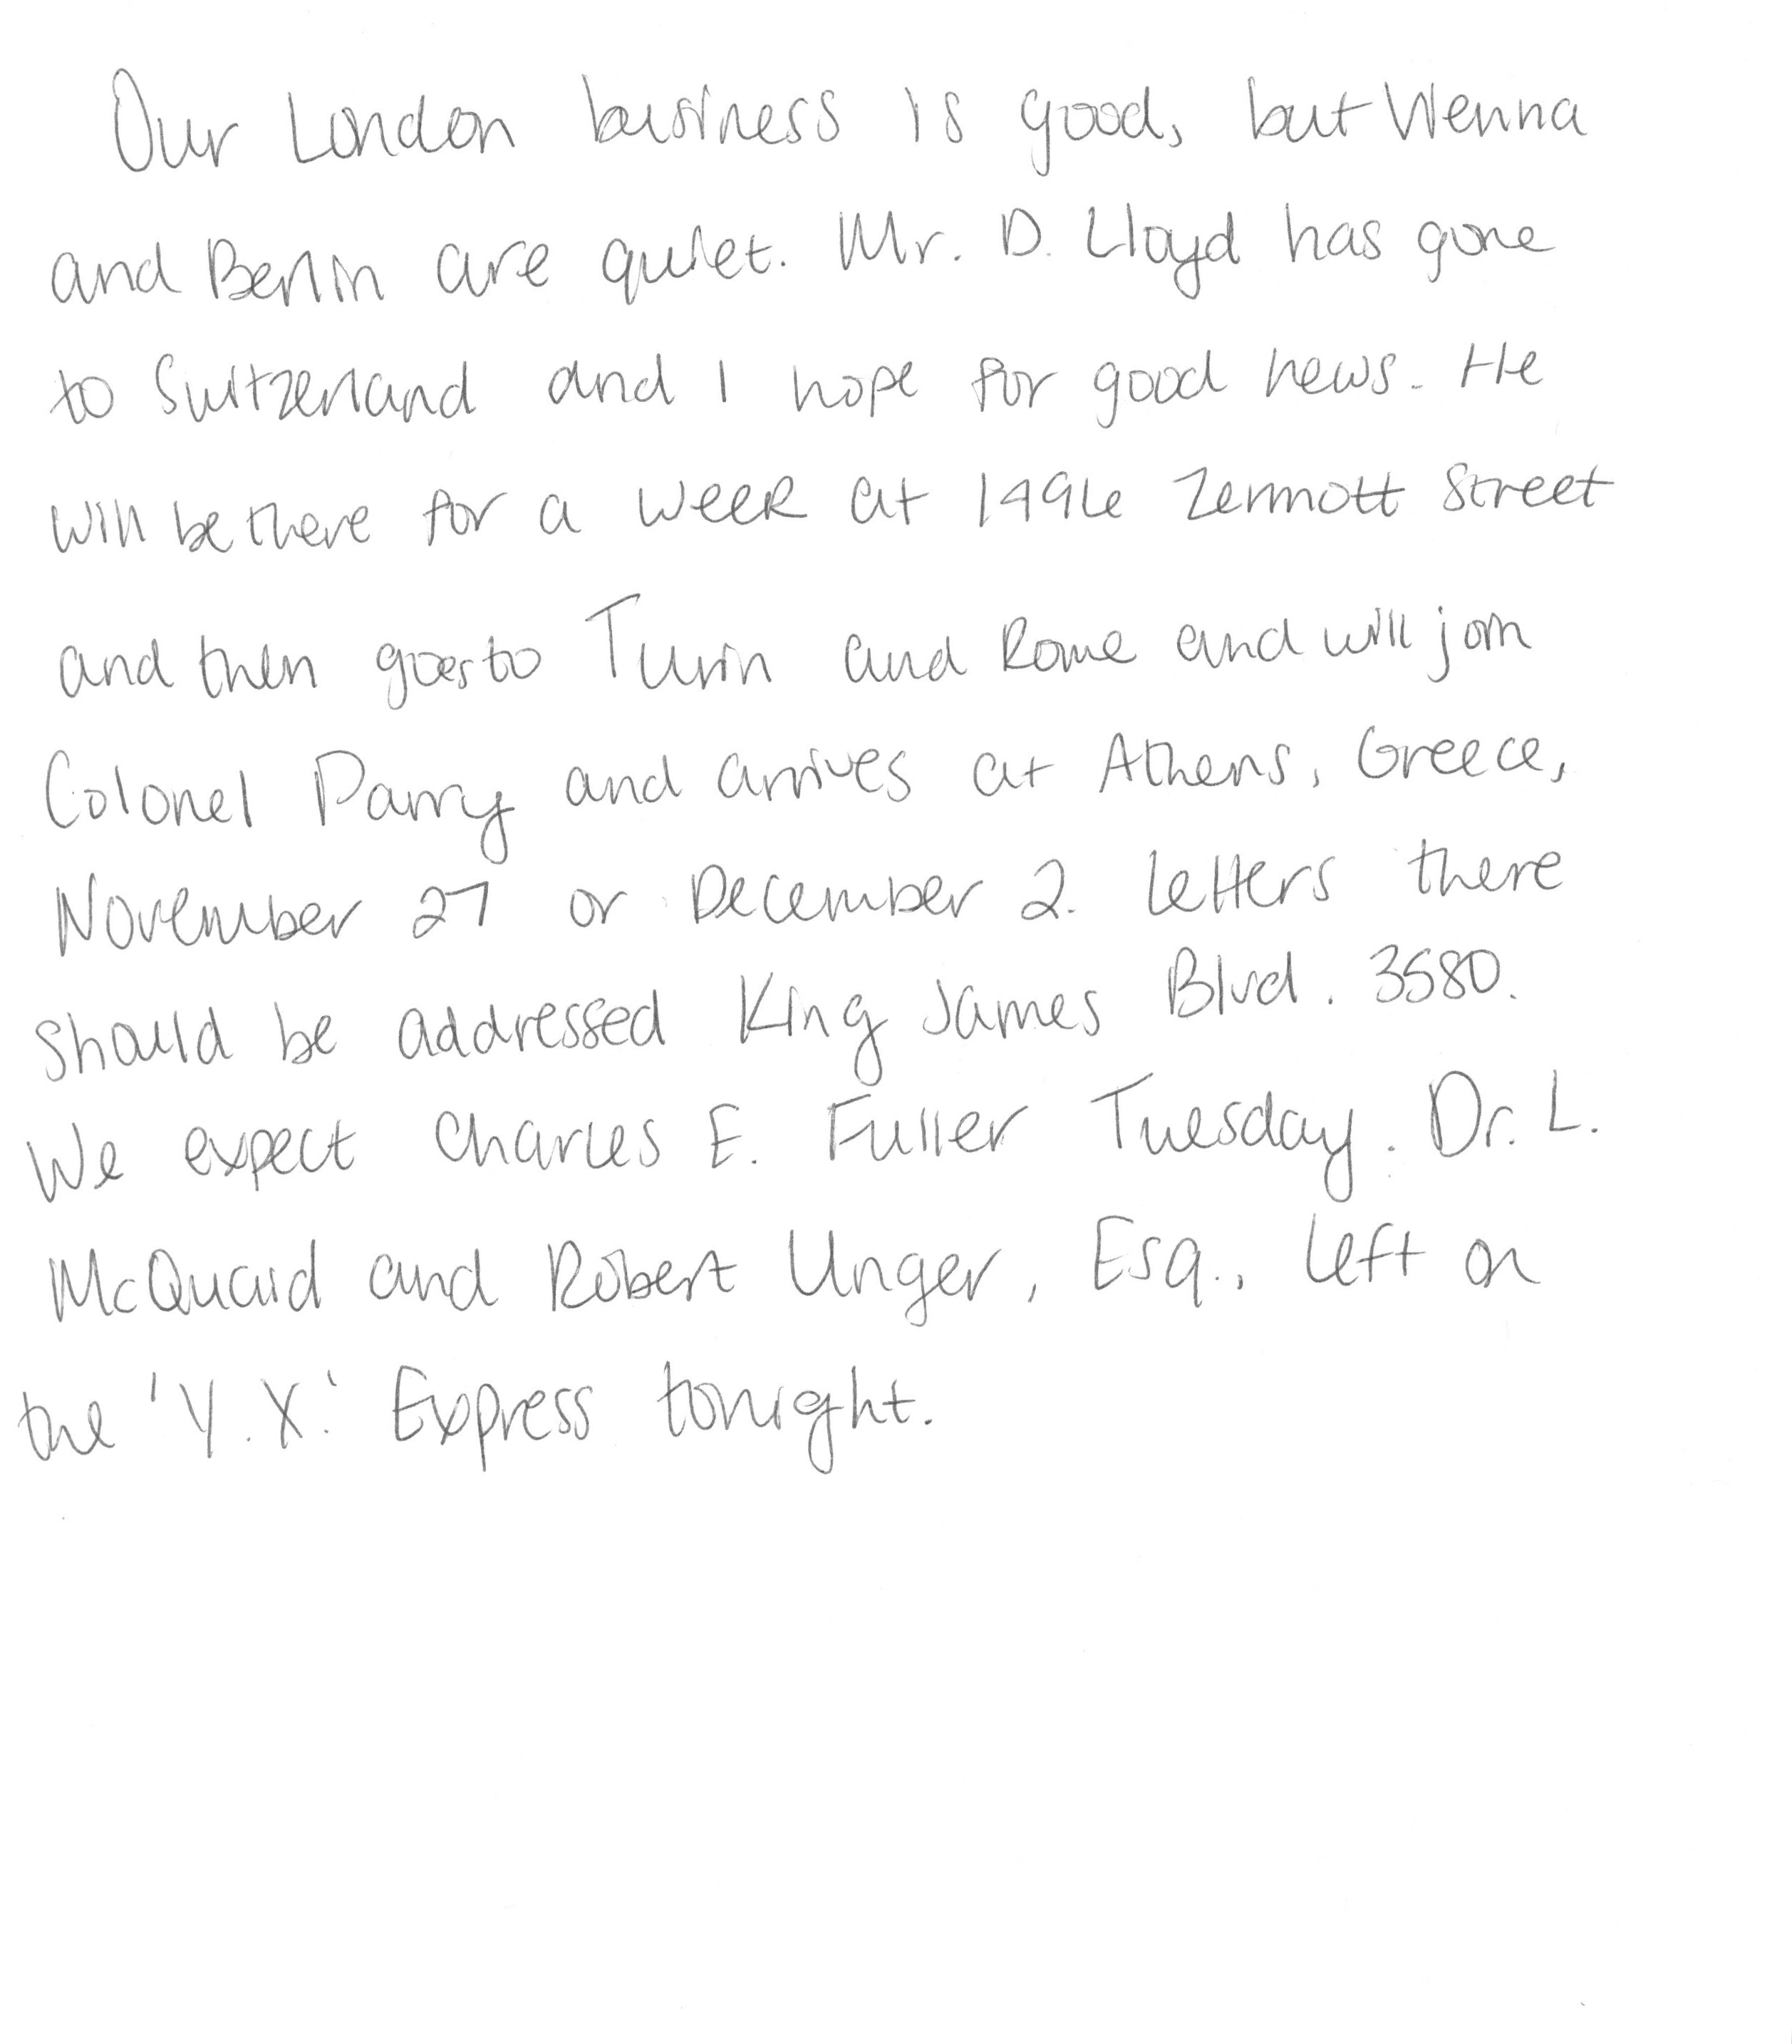 Our London business is good, but Vienna
and Berlin are quiet. Mr. D. Lloyd has gone
to Switzerland and I hope for good news. He
will be there for a week at 1496 Zermott Street
and then goes to Turin and Rome and will join
Colonel Parry and arrives at Athens, Greece,
November 27 or December 2. Letters there
should be addressed King James Blvd. 3580.
We expect Charles E. Fuller Tuesday. Dr. L.
McQuaid and Robert Unger, Esq., left on
the 'Y.X.' Express tonight.